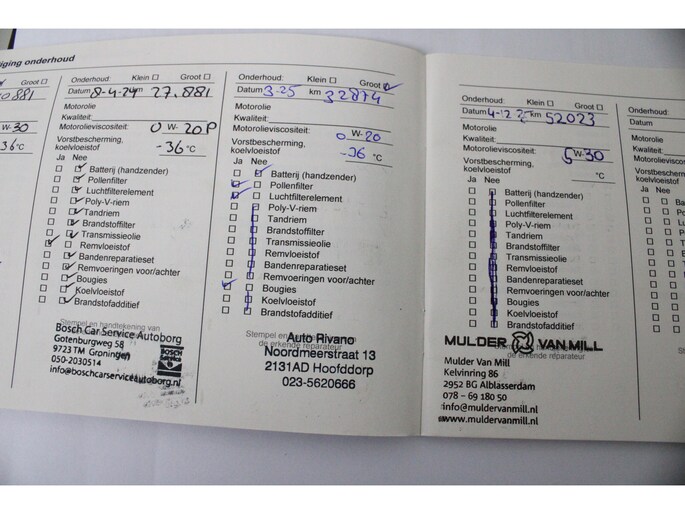 iging onderhoud
0881
W-30
36°C
Onderhoud: Klein Groot
Datum 8-4-24 km 27.881
Motorolie
Kwaliteit:
Motorolieviscositeit: 0 W- 20P
Vorstbescherming, koelvloeistof -36 °C
Ja Nee
Batterij (handzender)
Pollenfilter
Luchtfilterelement
Poly-V-riem
Tandriem
Brandstoffilter
Transmissieolie
Remvloeistof
Bandenreparatieset
Remvoeringen voor/achter
Bougies
Koelvloeistof
Brandstofadditief
Stempel en handtekening van
Bosch Car Service Autoborg
Gotenburgweg 58
9723 TM Groningen
050-2030514
info@boschcarserviceautoborg.nl
BOSCH
Service
Onderhoud: Klein Groot
Datum 3-25 km 32874
Motorolie
Kwaliteit:
Motorolieviscositeit: 0 W- 20
Vorstbescherming, koelvloeistof -36 °C
Ja Nee
Batterij (handzender)
Pollenfilter
Luchtfilterelement
Poly-V-riem
Tandriem
Brandstoffilter
Transmissieolie
Remvloeistof
Bandenreparatieset
Remvoeringen voor/achter
Bougies
Koelvloeistof
Brandstofadditief
Stempel en
de erkende reparateur
Auto Rivano
Noordmeerstraat 13
2131AD Hoofddorp
023-5620666
Onderhoud: Klein Groot
Datum 4-12 km 52023
Motorolie
Kwaliteit:
Motorolieviscositeit: 5 W- 30
Vorstbescherming, koelvloeistof °C
Ja Nee
Batterij (handzender)
Pollenfilter
Luchtfilterelement
Poly-V-riem
Tandriem
Brandstoffilter
Transmissieolie
Remvloeistof
Bandenreparatieset
Remvoeringen voor/achter
Bougies
Koelvloeistof
Brandstofadditief
de erkende reparateur
MULDER VAN MILL
Mulder Van Mill
Kelvinring 86
2952 BG Alblasserdam
078 - 69 180 50
info@muldervanmill.nl
www.muldervanmill.nl
Onderhoud:
Datum
Motorolie
Kwaliteit:
Motorolieviscositeit
Vorstbescherming, koelvloeistof
Ja Nee